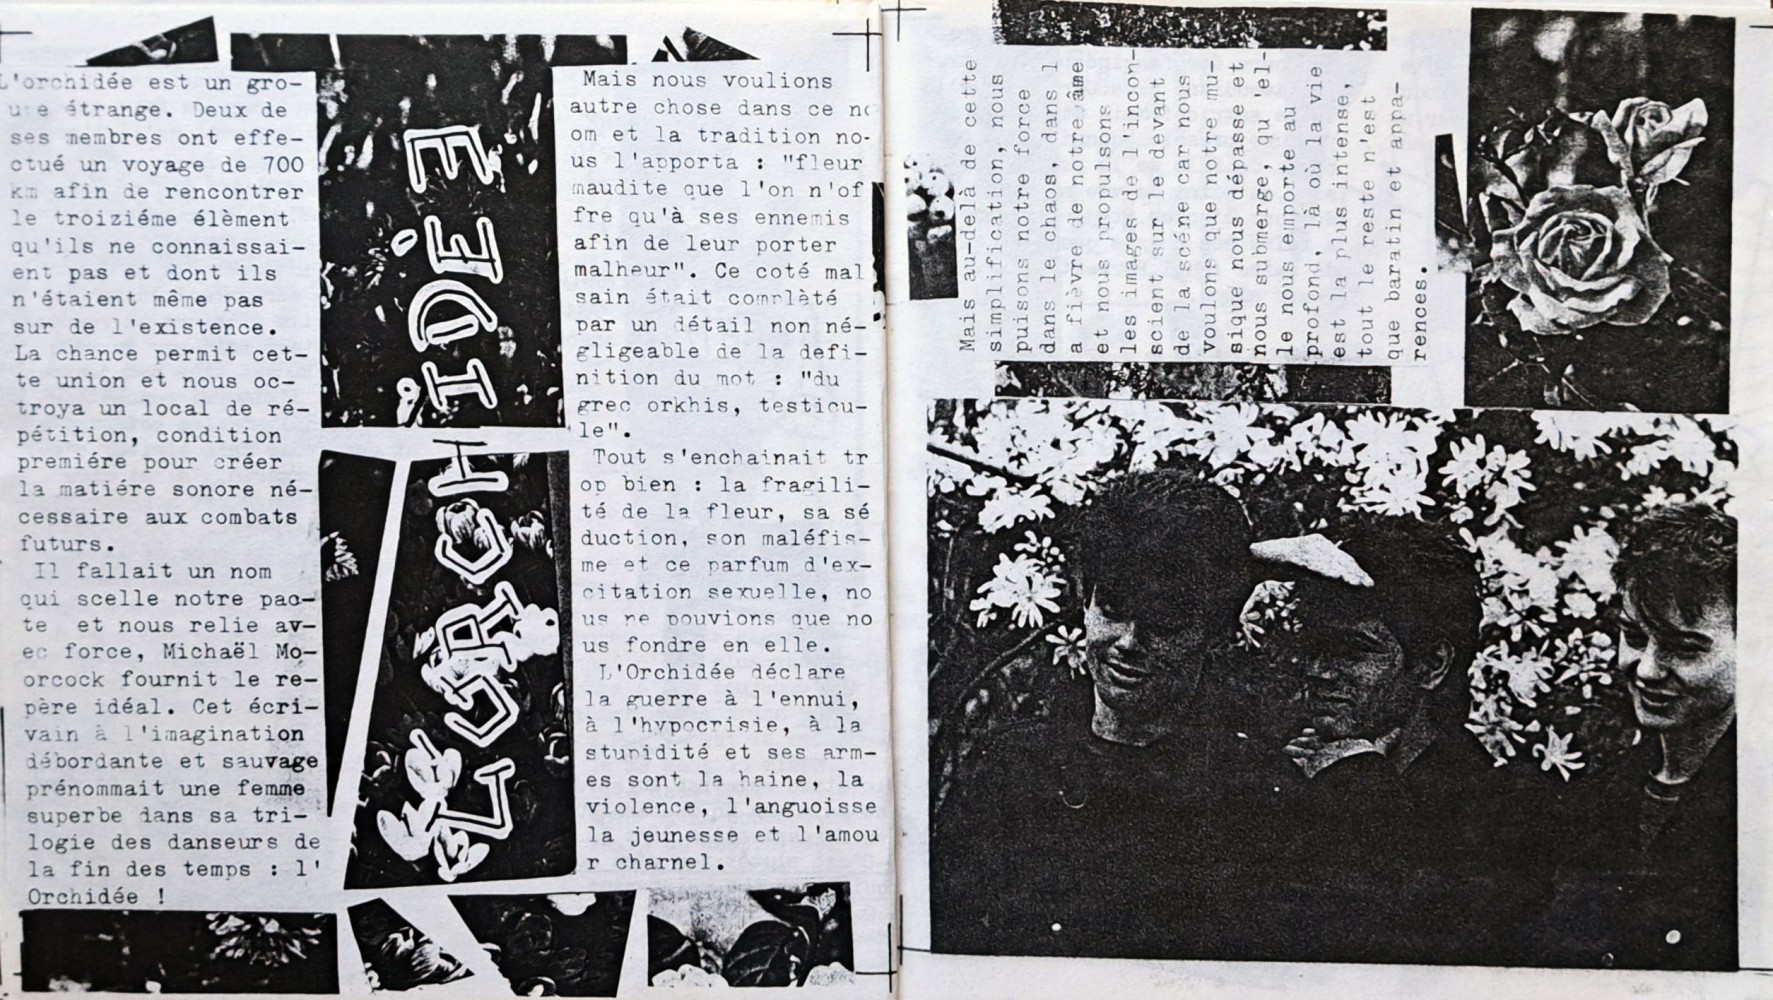 L'orchidée est un gro-
upe étrange. Deux de
ses membres ont effe-
ctué un voyage de 700
km afin de rencontrer
le troiziéme élèment
qu'ils ne connaissai-
ent pas et dont ils
n'étaient même pas
sur de l'existence.
La chance permit cet-
te union et nous oc-
troya un local de ré-
pétition, condition
premiére pour créer
la matiére sonore né-
cessaire aux combats
futurs.
Il fallait un nom
qui scelle notre pac-
te et nous relie av-
ec force, Michaël Mo-
orcock fournit le re-
père idéal. Cet écri-
vain à l'imagination
débordante et sauvage
prénommait une femme
superbe dans sa tri-
logie des danseurs de
la fin des temps : l'
Orchidée !
L'ORCHIDÈE
Mais nous voulions
autre chose dans ce no
om et la tradition no-
us l'apporta : "fleur
maudite que l'on n'of
fre qu'à ses ennemis
afin de leur porter
malheur". Ce coté mal
sain était complèté
par un détail non né-
gligeable de la defi-
nition du mot : "du
grec orkhis, testicu-
le".
Tout s'enchainait tr
op bien : la fragili-
té de la fleur, sa sé
duction, son maléfis-
me et ce parfum d'ex-
citation sexuelle, no
us ne pouvions que no
us fondre en elle.
L'Orchidée déclare
la guerre à l'ennui,
à l'hypocrisie, à la
stupidité et ses arm-
es sont la haine, la
violence, l'anguoisse
la jeunesse et l'amou
r charnel.
Mais au-delà de cette
simplification, nous
puisons notre force
dans le chaos, dans l
a fièvre de notre âme
et nous propulsons
les images de l'incon-
scient sur le devant
de la scéne car nous
voulons que notre mu-
sique nous dépasse et
nous submerge, qu'el-
le nous emporte au
profond, là où la vie
est la plus intense,
tout le reste n'est
que baratin et appa-
rences.